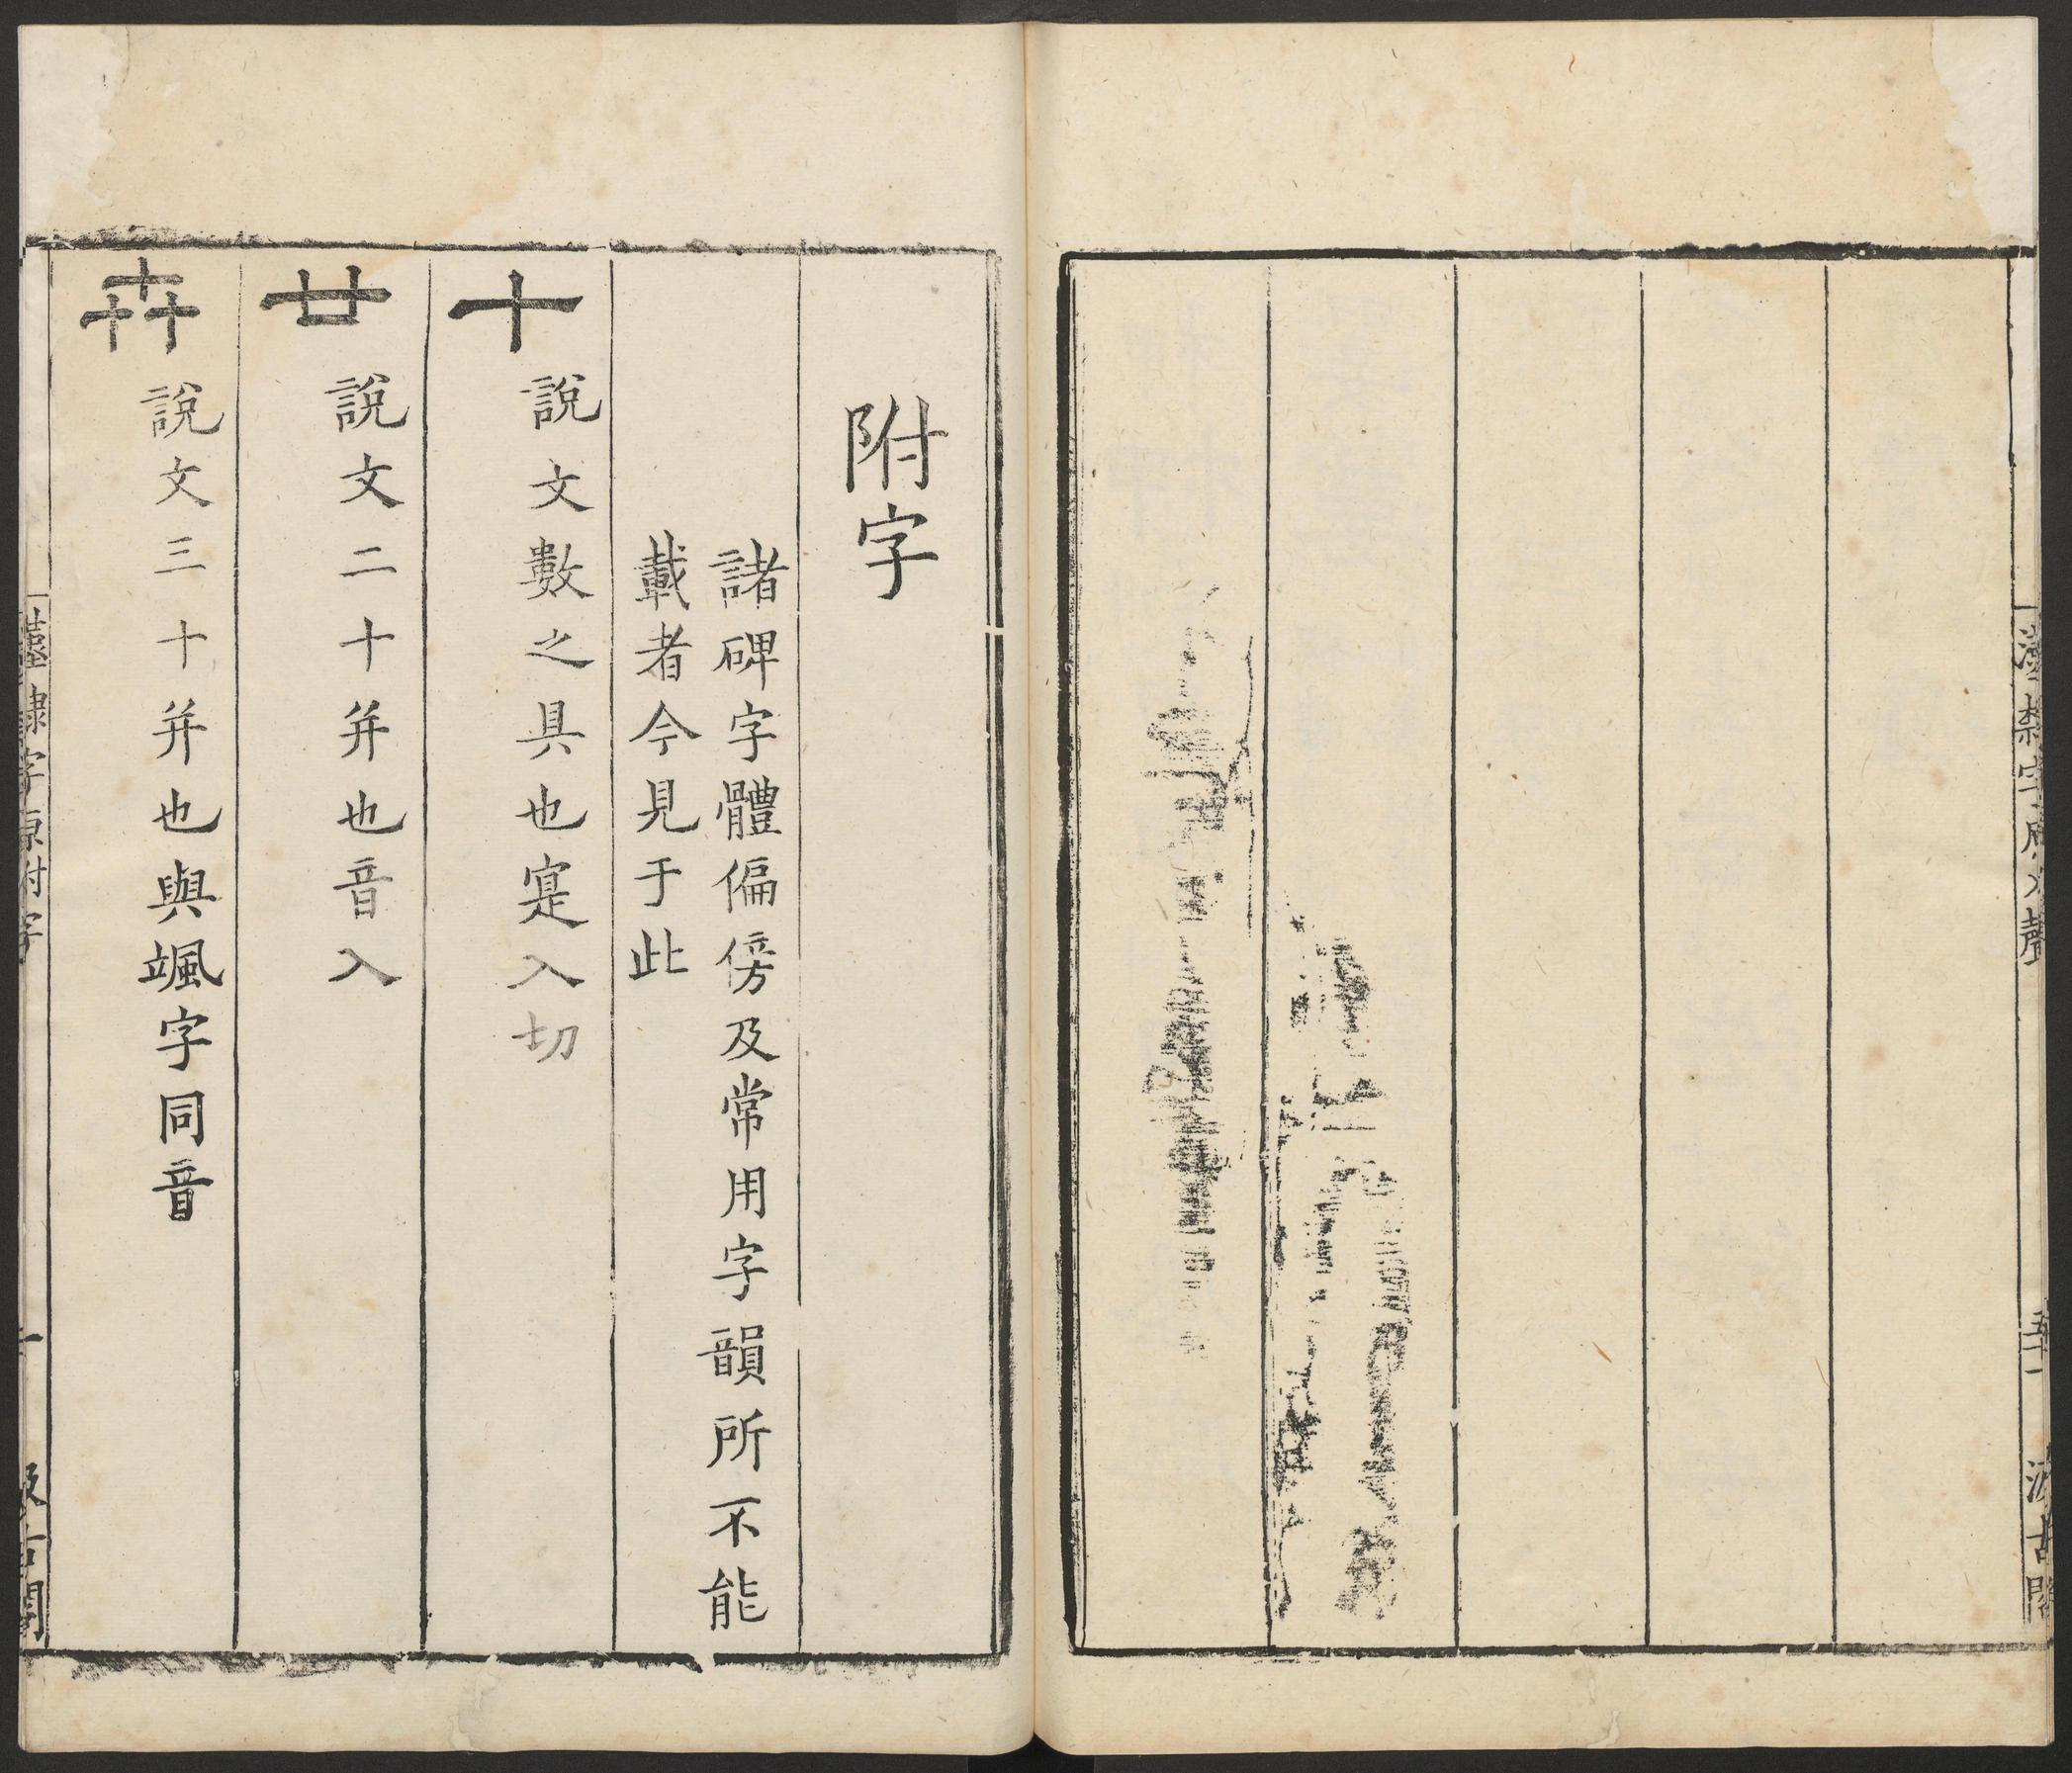 漢隸字原入聲
五十一
汲古閣
附字
諸碑字體偏傍及常用字韻所不能
載者今見于此
十 說文數之具也寔入切
廿 說文二十并也音入
卅 說文三十并也與颯字同音
漢隸字原附字
一
汲古閣